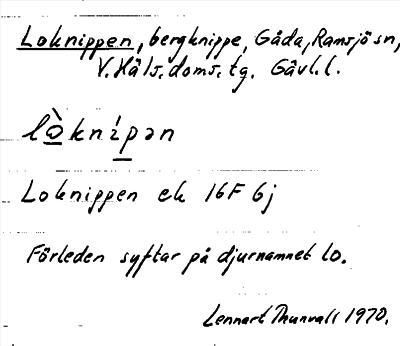 Loknippen, bergknippe, Gåda, Ramsjö sn,
V. Häls. doms. tg. Gävl. l.
lò̱knípən
Loknippen ek 16F 6j
Förleden syftar på djurnamnet lo.
Lennart Thunvall 1970.